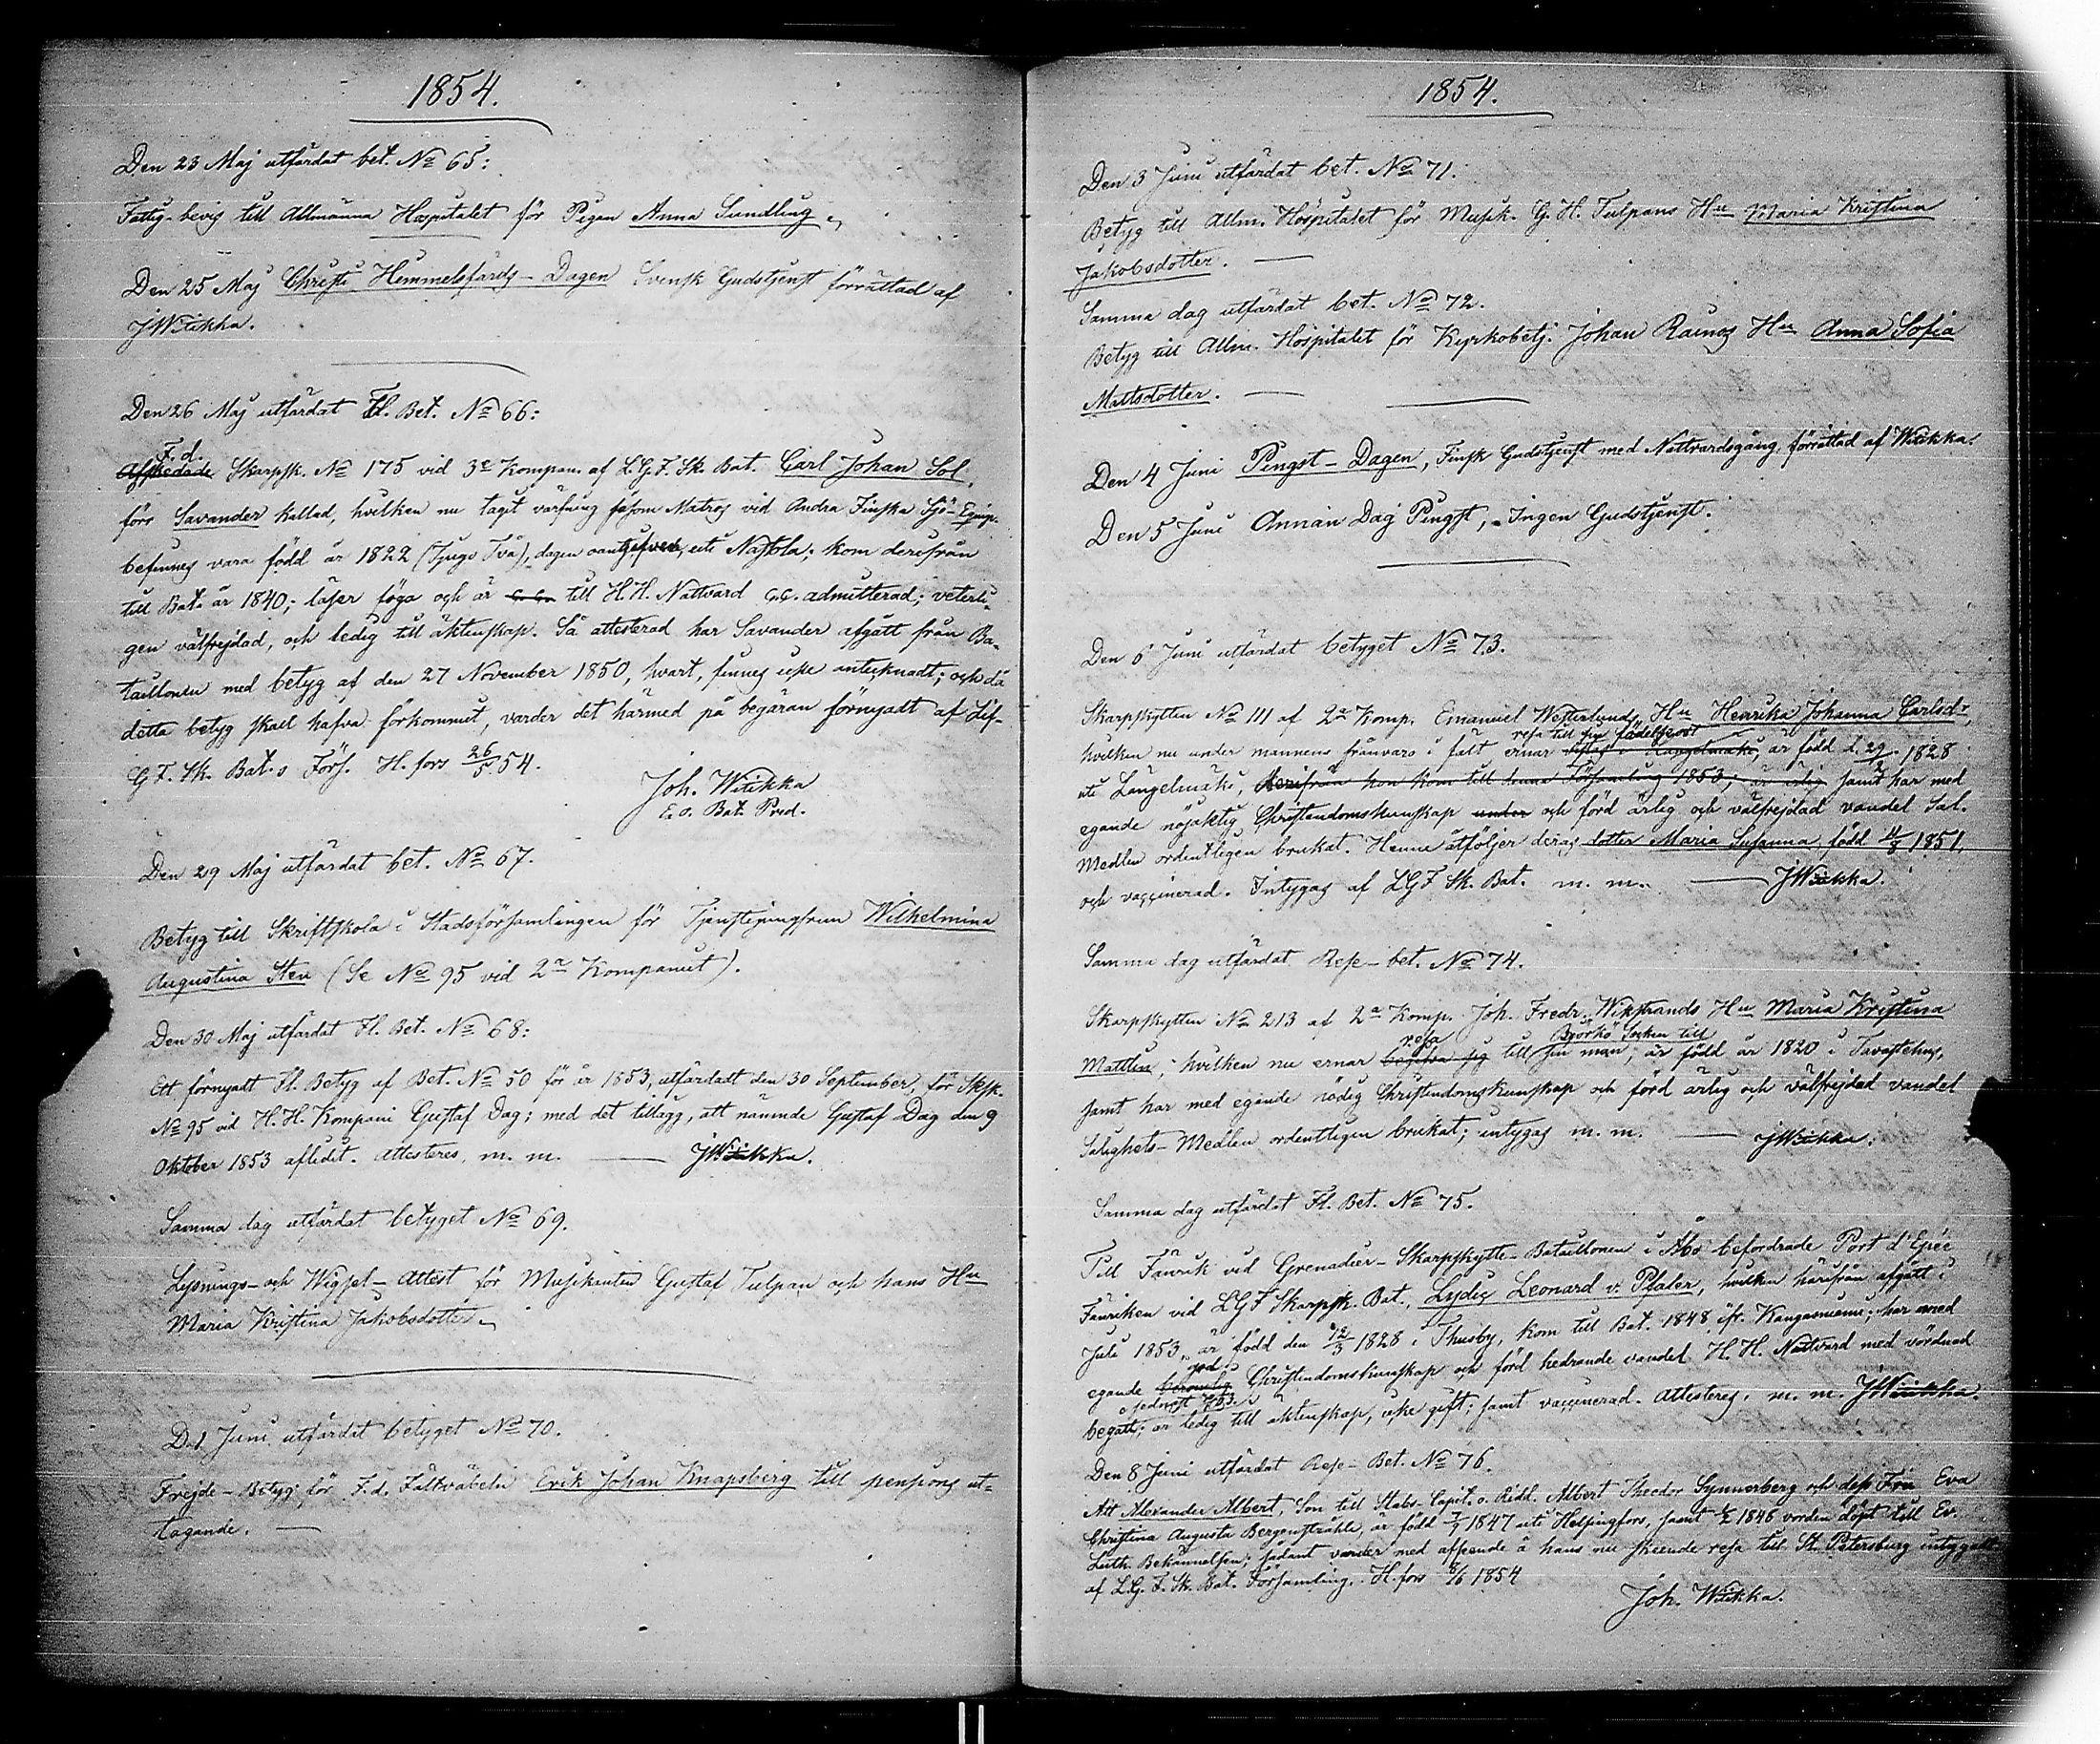 1854.
Den 23 Maj utfärdat bet. No 65:
Fattig-bevis till Allmänna Hospitalet för Pigan Anna Sundling.
Den 25 Maj Christi Himmelsfärds-Dagen Svensk Gudstjenst förrättad af
JWitikka.
Den 26 Maj utfärdat Fl. Bet. No 66:
F. d.
Afskedade Skarpsk. No 175 vid 3e Kompan. af L. G. F. Sk. Bat. Carl Johan Sol,
förr Savander kallad, hvilken nu tagit värfning såsom Matros vid Andra Finska Sjö-Equip.
befinnes vara född år 1822 (Tjugo Två), dagen oantgifven, uti Nastola; kom derifrån
till Bat. år 1840; läser föga och är till H. H. Nattvard admitterad; veterli-
gen välfrejdad, och ledig till äktenskap. Så attesterad har Savander afgått från Ba-
taillonen med betyg af den 27 November 1850, hvart, finnes icke antecknadt; och då
detta betyg skall hafva förkommit, varder det härmed på begäran förnyadt af Lif-
G F. Sk. Bat.s Förs. H. fors 26/5 54.
Joh. Witikka
E. o. Bat. Pred.
Den 29 Maj utfärdat bet. No 67.
Betyg till Skriftskola i Stadsförsamlingen för Tjenstepingfrun Wilhelmina
Augustina Sten (Se No 95 vid 2a Kompaniet).
Den 30 Maj utfärdat Fl. Bet. No 68:
Ett förnyadt Fl. Betyg af Bet. No 50 för år 1853, utfärdadt den 30 September, för Sksk.
No 95 vid H. H. Kompani Gustaf Dag; med det tillägg, att nämnde Gustaf Dag den 9
Oktober 1853 aflidit. Attesteres, m. m. JWitikka.
Samma dag utfärdat betyget No 69.
Lysnings- och Wigsel-Attest för Musikanten Gustaf Tulpan och hans Hu
Maria Kristina Jakobsdotter.
D. 1 Juni utfärdat betyget No 70.
Frejde-Betyg för F. d. Fältväbeln Erik Johan Knapsberg till pensions ut-
tagande.
1854.
Den 3 Juni utfärdat bet. No 71.
Betyg till Allm. Hospitalet för Musik. G. H. Tulpans Hu Maria Kristina
Jakobsdotter.
Samma dag utfärdat bet. No 72.
Betyg till Allm. Hospitalet för Kyrkobetj. Johan Hu Anna Sofia
Mattsdotter.
Den 4 Juni Pingst-Dagen, Finsk Gudstjenst med Nattvardsgång förrättad af Witikka.
Den 5 Juni Annan Dag Pingst, Ingen Gudstjenst.
Den 6 Juni utfärdat betyget No 73.
Skarpskytten No 111 af 2a Komp. Emanuel Westerlunds Hu Henrika Johanna Carlsdr,
resa till sin födelseort
hvilken nu under mannens frånvaro i fält ernar Längelmäki, är född d. 29/2 1828
uti Längelmäki, derifrån hon kom till denna Församling 1853; är ärlig samt har med
egande nöjaktig Christendomskunskap under och förd ärlig och välfrejdad vandel Sal.
Medlen ordentligen brukat. Henne åtföljer deras dotter Maria Susanna, född 4/8 1851,
och vaccinerad. Intygas af LGF Sk. Bat. m. m. JWitikka.
Samma dag utfärdat Rese-bet. No 74.
Skarpskytten No 213 af 2a Komp. Joh. Fredr. Wikstrands Hu Maria Kristina
resa Björkö Socken till
Mattlin, hvilken nu ernar begifva sig till sin man, är född år 1820 i Tavastehus,
samt har med egande nödig Christendomskunskap och förd ärlig och välfrejdad vandel
Salighets-Medlen ordentligen brukat; intygas m. m. JWitikka.
Samma dag utfärdat Fl. Bet. No 75.
Till Fänrik vid Grenadier-Skarpskytte-Bataillonen i Åbo befordrade Port d'Epée
Fänriken vid LGF Skarpsk. Bat., Leonard v. Platen, hvilken härifrån afgått i
Juli 1853, är född den 12/3 1828 i Thusby, kom till Bat. 1848 ifr. Kangasniemi; har med
god
egande berömlig Christendomskunskap och förd hedrande vandel H. H. Nattvard med vördnad
sednast
begått; är ledig till äktenskap, icke gift; samt vaccinerad. Attesteres, m. m. JWitikka
Den 8 Juni utfärdat Rese-Bet. No 76.
Att Alexander Albert, Son till Stabs-Capit. o. Ridd. Albert Theodor Synnerberg och dess Fru Eva
Christina Augusta Bergenstråhle, är född 1847 uti Helsingfors, samt 1846 vorden döpt till Ev.
Luth. Bekännelsen; sådant varder med afseende å hans nu skeende resa till St. Petersburg intygadt
af L. G. F. Sk. Bat. Församling. H. fors 8/6 1854
Joh. Witikka.